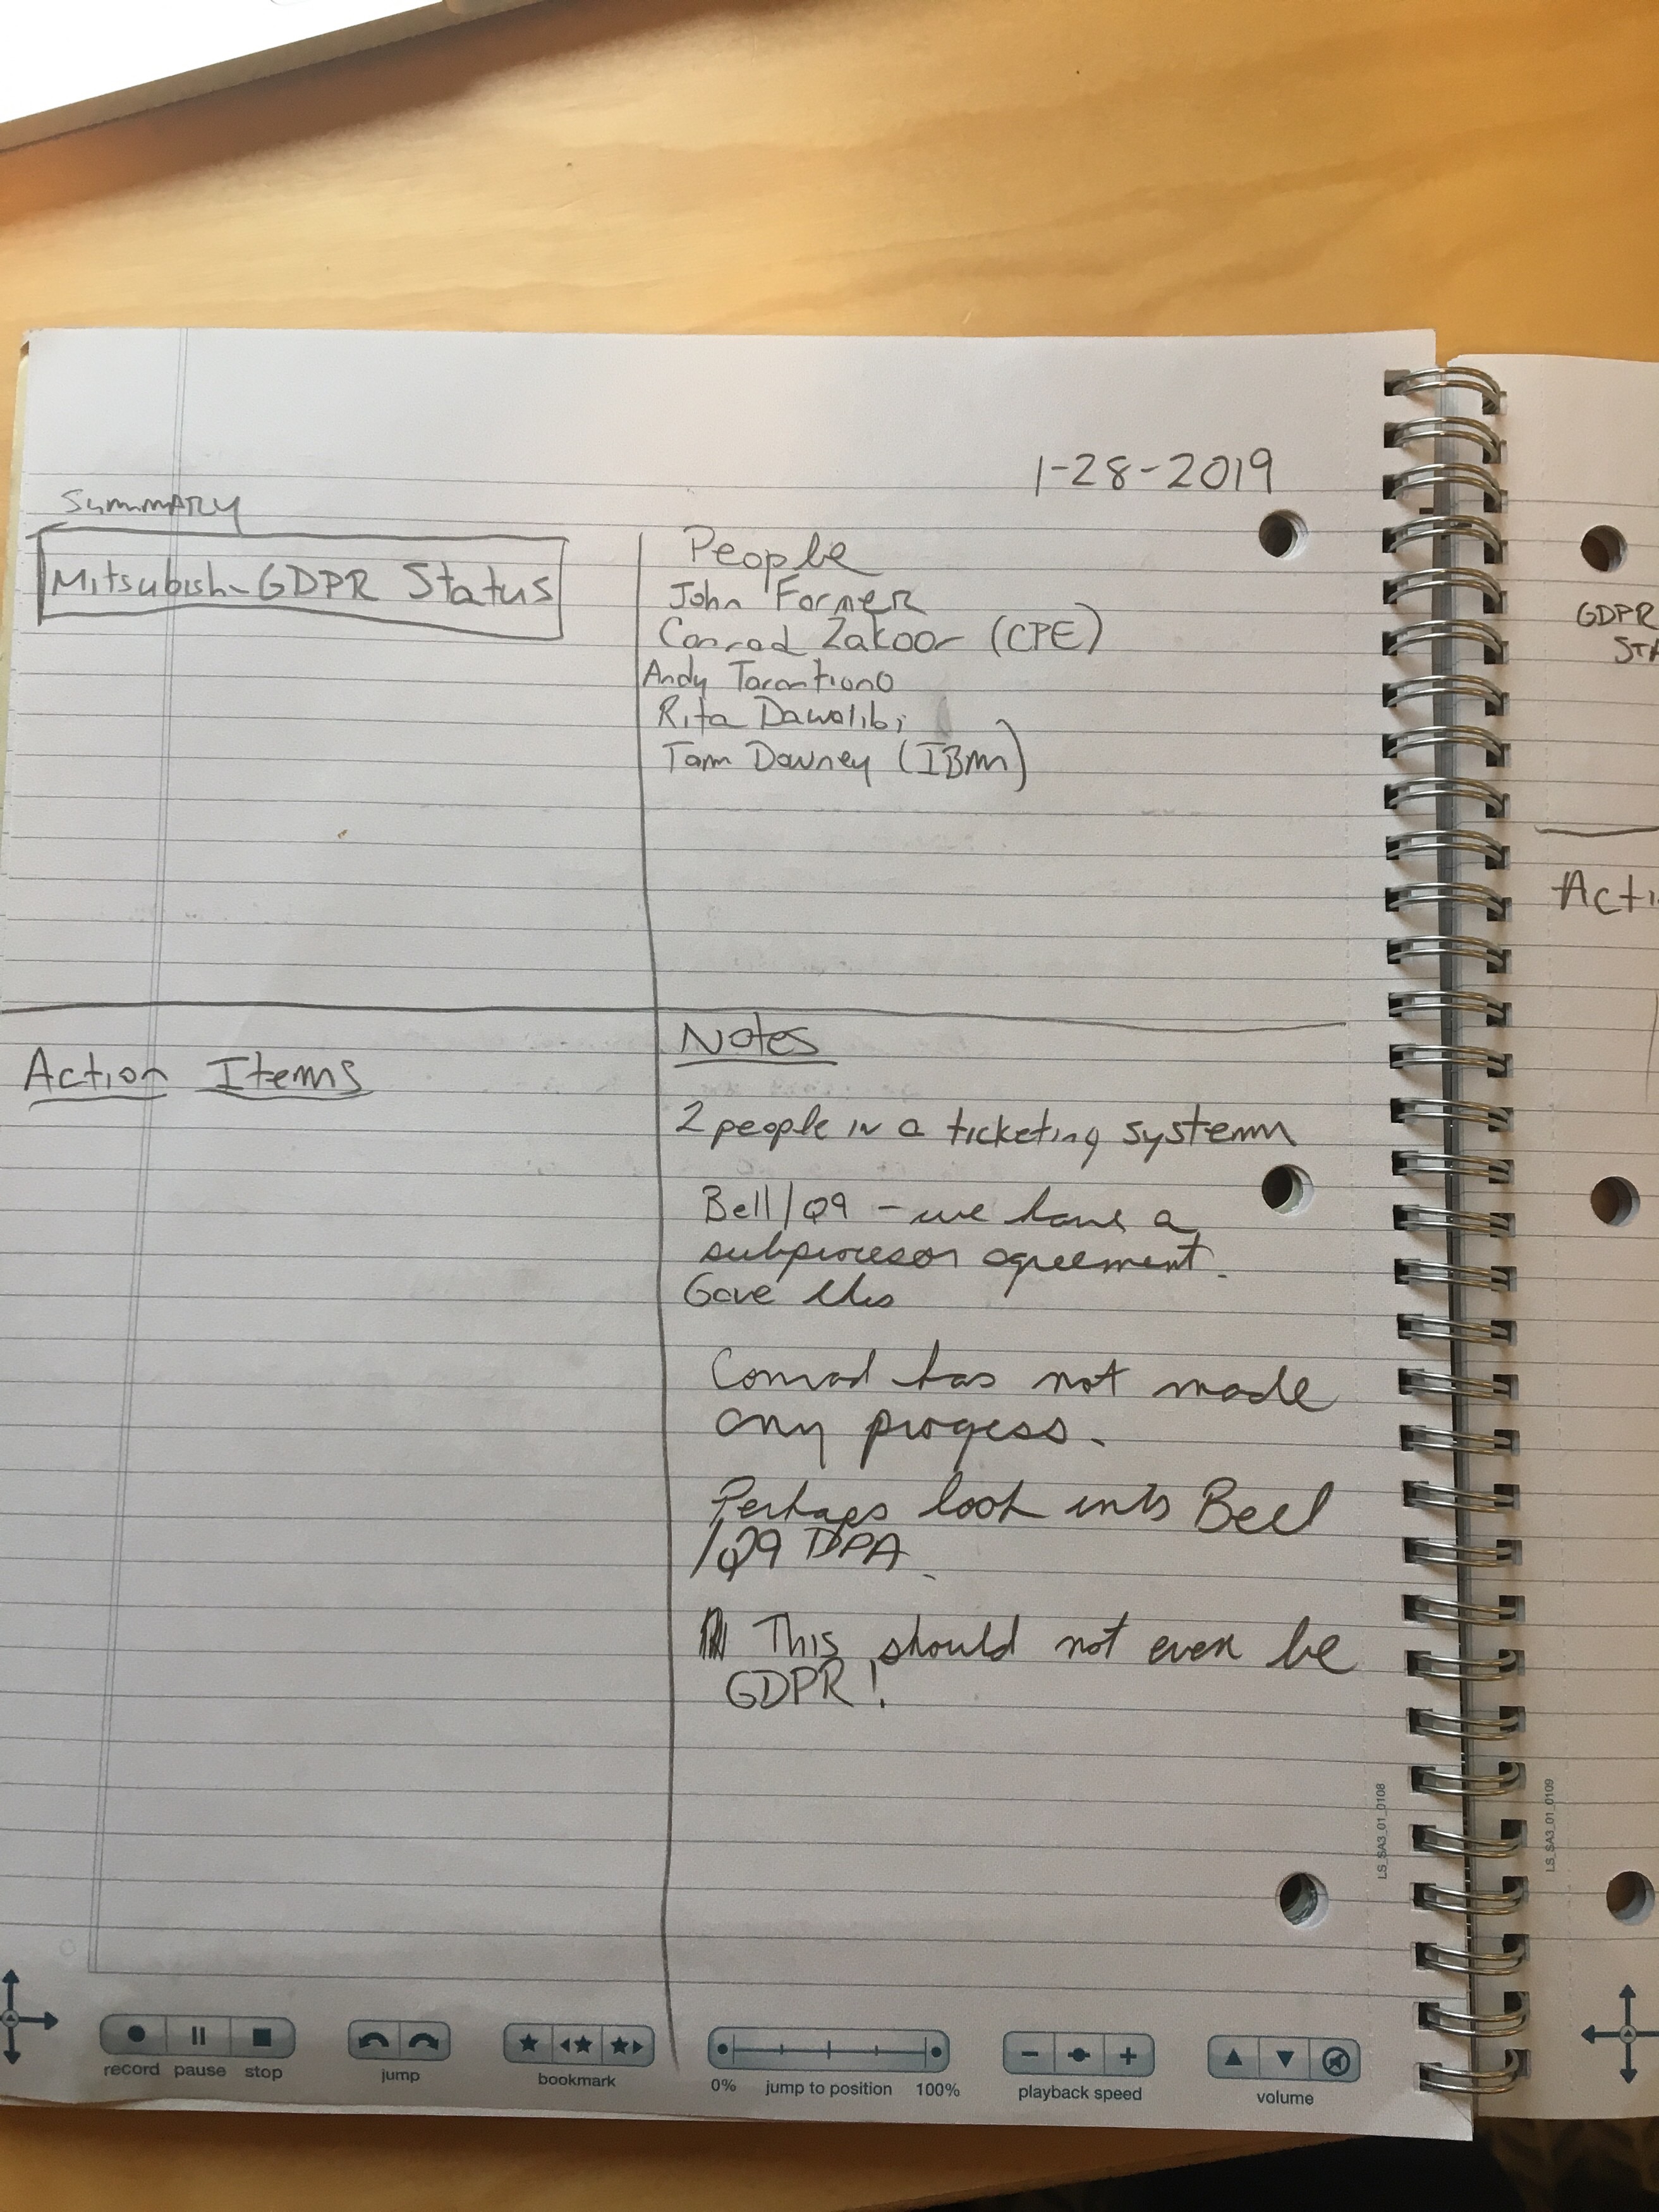 1-28-2019
Summary
Mitsubishi GDPR Status
People
John Former
Conrad Zakoor (CPE)
Andy Tarantiono
Rita Dawalibi
Tom Downey (IBM)
Action Items
Notes
2 people in a ticketing system
Bell/Q9 - we have a
subprocesor agreement.
Gave this
Conrad has not made
any progess.
Perhaps look into Bell
/Q9 DPA.
This should not even be
GDPR!
LS_SA3_01_0108
record pause stop
jump
bookmark
0% jump to position 100%
playback speed
volume
GDPR
STA
Acti
LS_SA3_01_0109